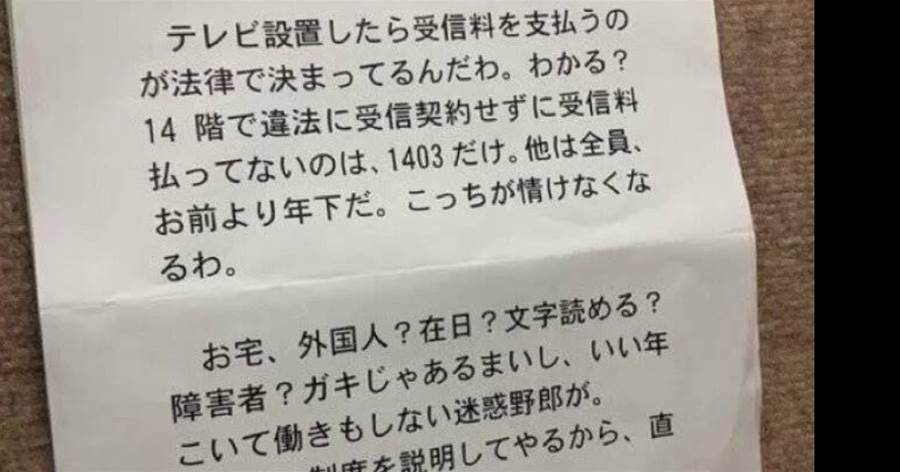 テレビ設置したら受信料を支払うの
が法律で決まってるんだわ。わかる？
14 階で違法に受信契約せずに受信料
払ってないのは、1403 だけ。他は全員、
お前より年下だ。こっちが情けなくな
るわ。
お宅、外国人？在日？文字読める？
障害者？ガキじゃあるまいし、いい年
こいて働きもしない迷惑野郎が。
制度を説明してやるから、直